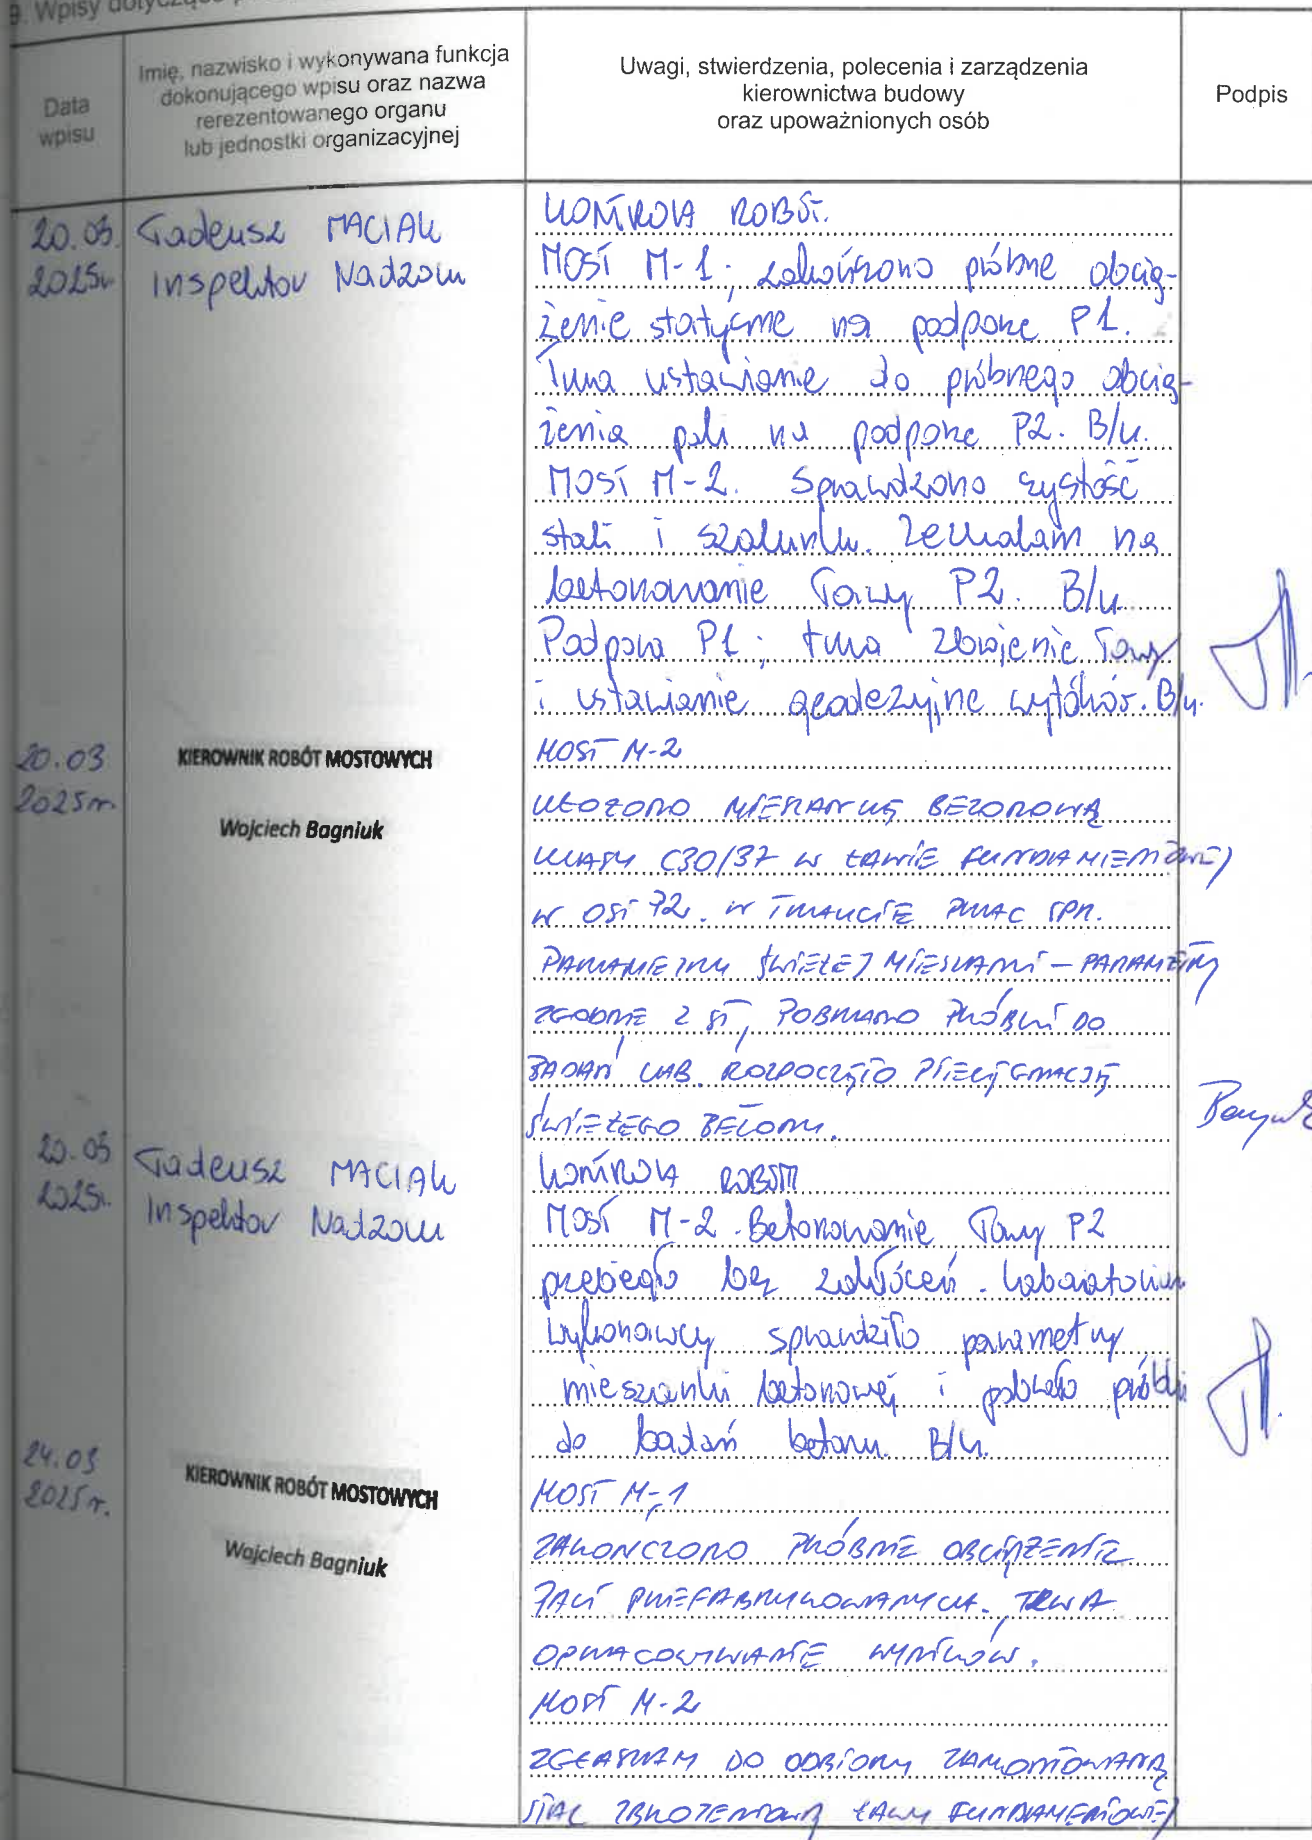 9. Wpisy dotyczące
Data
wpisu
Imię, nazwisko i wykonywana funkcja
dokonującego wpisu oraz nazwa
rerezentowanego organu
lub jednostki organizacyjnej
Uwagi, stwierdzenia, polecenia i zarządzenia
kierownictwa budowy
oraz upoważnionych osób
Podpis
20.03.
2025r
Tadeusz MACIAK
Inspektor Nadzoru
KONTROLA ROBÓT.
MOST M-1; zakończono próbne obcią-
żenie statyczne na podporze P1.
Trwa ustawianie do próbnego obcią-
żenia pali na podporze P2. B/u.
MOST M-2. Sprawdzono czystość
stali i szalunku. Zezwalam na
betonowanie ławy P2. B/u
Podpora P1; trwa zbrojenie ławy
i ustawianie geodezyjne wytyków. B/u.
20.03
2025r.
KIEROWNIK ROBÓT MOSTOWYCH
Wojciech Bagniuk
MOST M-2
UŁOŻONO MIESZANKĘ BETONOWĄ
KLASY C30/37 W ŁAWIE FUNDAMENTOWEJ
W OSI P2. W TRAKCIE PRAC SPR.
PARAMETRY ŚWIEŻEJ MIESZANKI - PARAMETRY
ZGODNE Z ST, POBRANO PRÓBKI DO
BADAŃ LAB. ROZPOCZĘTO PIELĘGNACJĘ
ŚWIEŻEGO BETONU.
20.03
2025r.
Tadeusz MACIAK
Inspektor Nadzoru
KONTROLA ROBÓT
MOST M-2. Betonowanie ławy P2
przebiegło bez zakłóceń. Laboratorium
wykonawcy sprawdziło parametry
mieszanki betonowej i pobrało próbki
do badań betonu. B/u.
24.03
2025r.
KIEROWNIK ROBÓT MOSTOWYCH
Wojciech Bagniuk
MOST M-1
ZAKOŃCZONO PRÓBNE OBCIĄŻENIE
PALI PREFABRYKOWANYCH. TRWA
OPRACOWYWANIE WYNIKÓW.
MOST M-2
ZGŁASZAM DO ODBIORU ZAMONTOWANĄ
STAL ZBROJENIOWĄ ŁAWY FUNDAMENTOWEJ